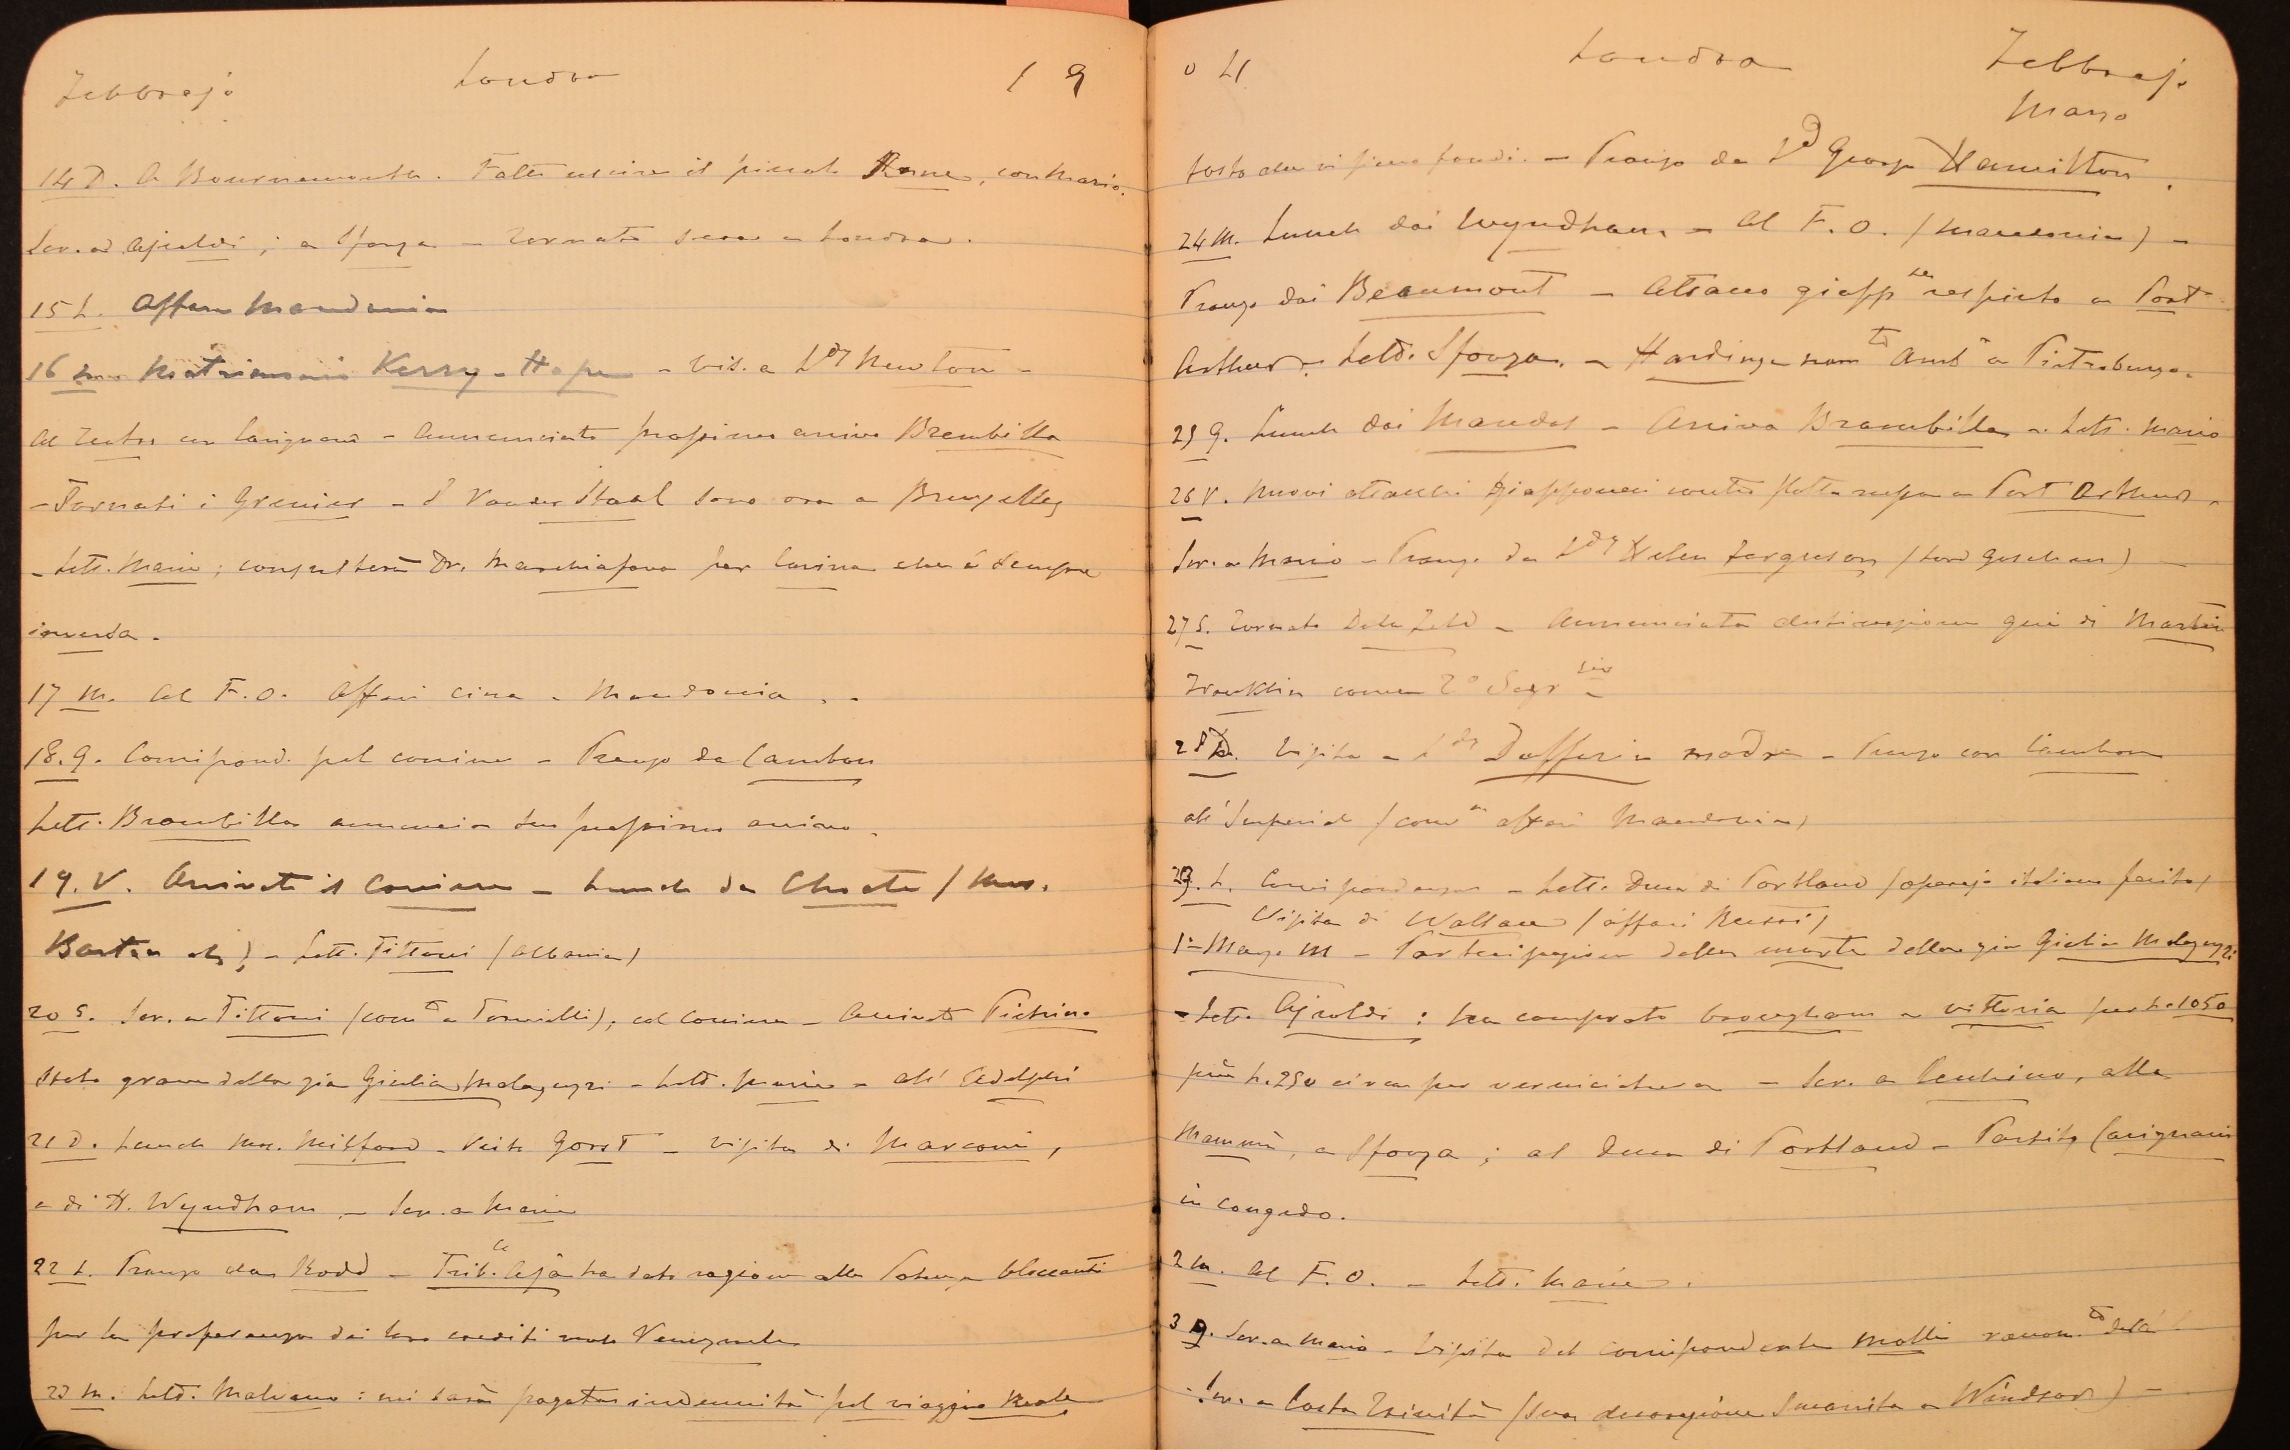 Febbrajo Londra 19
14 D. A Bournemouth. Fatto uscire il piccolo con Mario.
Scr. ad Ajroldi; a Sforza - Tornato sera a Londra.
15 L. Affari Macedonia
16 M. Matrimonio Kerry - Hope - Vis. a Ldy Newton -
Al Teatro con Carignani - Annunciato prossimo arrivo Brambilla
- Tornati i Grenier - I Vander Staal sono ora a Bruxelles
- Lett. Mario; consulterà Dr. Marchiafava per Carina che è sempre
17 M. Al F.O. Affari Cina - Macedonia -
18. G. Corrispond. pel corriere - Pranzo da Cambon
Lett. Brambilla annuncia suo prossimo arrivo.
19. V. Arrivato il Corriere - Lunch da Choate / Mrs.
- Lett. Tittoni (Albania)
20 S. Scr. a Tittoni (com to a Tornielli), col corriere - Arrivato
Stato grave della zia Giulia Malaguzzi - Lett. - all' Adelphi
21 D. Lunch Mrs. Milford - Visite Gorst - Visita di Marconi,
e di H. Wyndham - Scr. a Mario
22 L. Pranzo da Rodd - Trib. le Aja ha dato ragione alle Potenze bloccanti
per la preferenza dei loro crediti verso Venezuela
23 M. Lett. Malvano: mi sarà pagata indennità pel viaggio Reale
04 Londra Febbrajo
Marzo
tosto che vi siano fondi. - Pranzo da Ld George Hamilton.
24 M. Lunch dai Wyndham - Al F.O. (Macedonia) -
Pranzo dai Beaumont - Attacco giapp se respinto a Port
Arthur - Lett. Sforza. - Hardinge nom to Amb e a Pietroburgo.
25 G. Lunch dai - Arriva Brambilla - Lett. Mario
26 V. Nuovi attacchi Giapponesi contro flotta russa a Port Arthur -
Scr. a Mario - Pranzo da Ldy Helen Ferguson (Lord Goschen) -
27 S. Tornato - Annunciata destinazione qui di Martin
Franklin come 2º Segr rio
28 D. Visita a Ldy Dufferin madre - Pranzo con Cambon
all'Imperial (conv ne affari Macedonia)
29. L. Corrispondenza - Lett. Duca di Portland (operajo italiano ferito)
Visita di Wallace (affari Russi)
1º Marzo M - Partecipazione della morte della zia Giulia Malaguzzi
- Lett. Ajroldi: ha comprato brougham e vittoria per L. 1050
più L. 250 circa per verniciatura - Scr. a Cecchino, alla
Mammà, a Sforza; al Duca di Portland - Partito Carignani
in congedo.
2 M. Al F.O. - Lett. Mario.
3 G. Scr. a Mario - Visita del corrispondente
Scr. a Costa (sua decorazione smarrita a Windsor) -